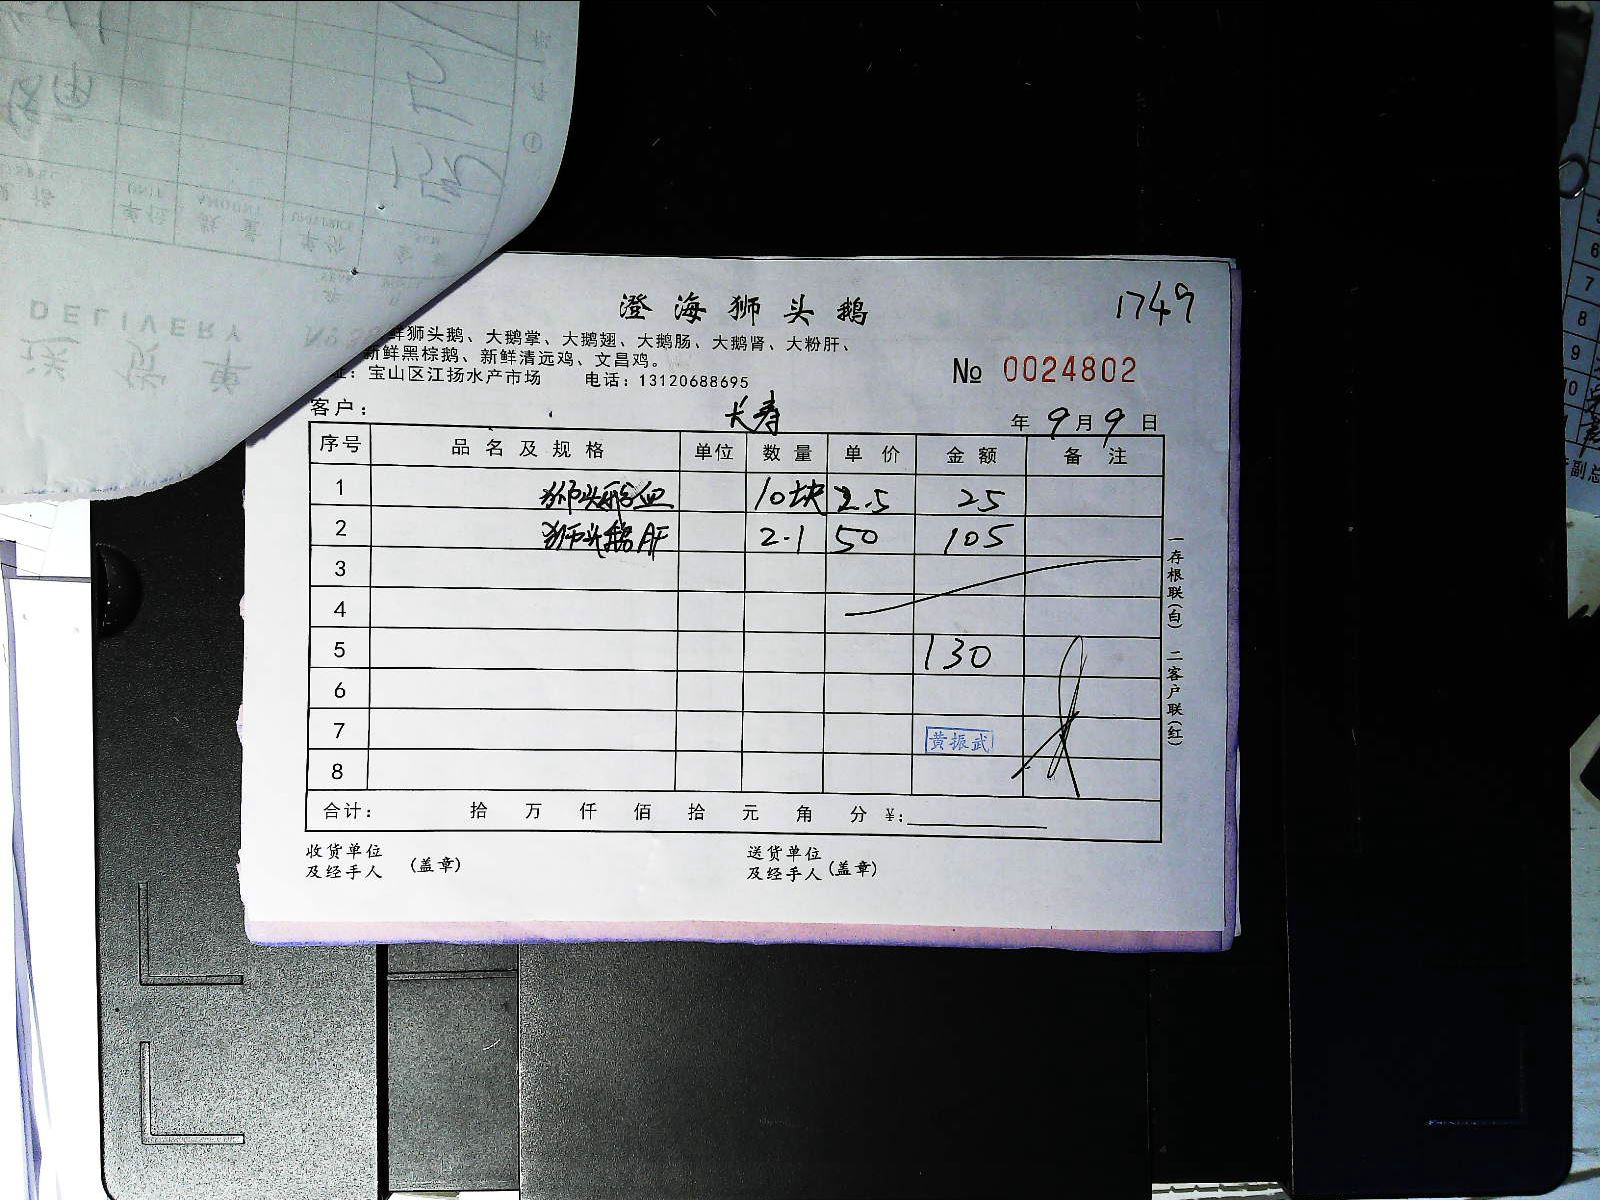 澄海狮头鹅
1749
鲜狮头鹅、大鹅掌、大鹅翅、大鹅肠、大鹅肾、大粉肝、
新鲜黑棕鹅、新鲜清远鸡、文昌鸡。
址：宝山区江扬水产市场 电话：13120688695
№ 0024802
客户： 长寿 年 9 月 9 日
序号 品名及规格 单位 数量 单价 金额 备注
1 狮头鹅血 10块 2.5 25
2 狮头鹅肝 2.1 50 105
3
4
5 130
6
7 黄振武
8
合计： 拾 万 仟 佰 拾 元 角 分 ¥:
收货单位
及经手人 (盖章)
送货单位
及经手人 (盖章)
一存根联(白) 二客户联(红)
DELIVERY
送货单
6
7
8
9
10